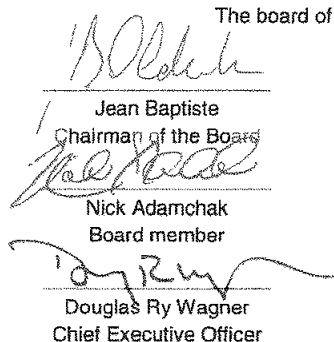 The board of
Jean Baptiste
Chairman of the Board
Nick Adamchak
Board member
Douglas Ry Wagner
Chief Executive Officer